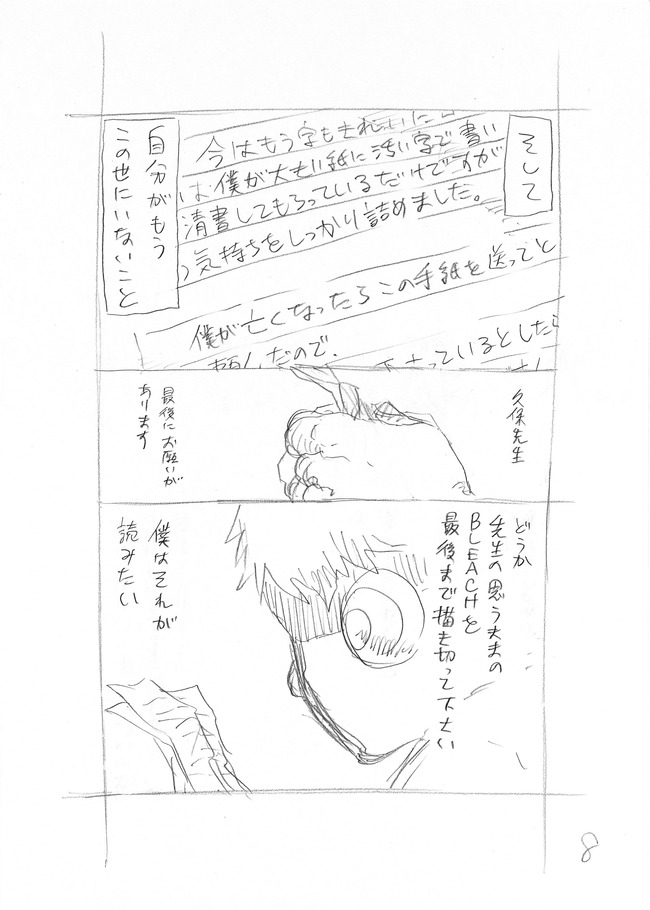 そして
今はもう字もきれいに
は僕が大きい紙に汚い字で書い
清書してもらっているだけですが
気持ちをしっかり詰めました。
僕が亡くなったらこの手紙を送ってと
頼んだので、
さっているとしたら
自分がもう
この世にいないこと
久保先生
最後にお願いが
あります
どうか
先生の思うままの
BLEACHを
最後まで描き切って下さい
僕はそれが
読みたい
8